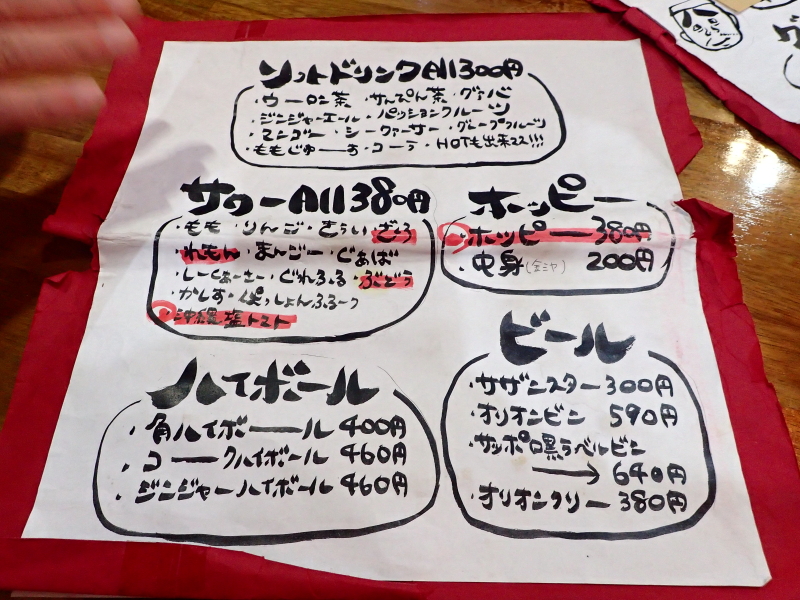 ソフトドリンクAll300円
・ウーロン茶 ・さんぴん茶 ・グァバ
・ジンジャーエール ・パッションフルーツ
・マンゴー ・シークァーサー ・グレープフルーツ
・ももじゅーす ・コーラ ・HOTも出来ママ!!!
サワーAll380円
・もも ・りんご ・きうい
・れもん ・まんごー ・ぐあば
・しーくぁーさー ・ぐれふる ・ぶどう
・かしす ・ぱっしょんふるーつ
・沖縄塩トマト
ホッピー
・ホッピー 380円
・中身(金ミヤ) 200円
ハイボール
・角ハイボール 400円
・コークハイボール 460円
・ジンジャーハイボール 460円
ビール
・サザンスター 300円
・オリオンビン 590円
・サッポロ黒ラベルビン
→ 640円
・オリオンフリー 380円